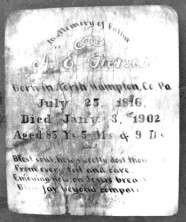 In Memory of Father
Born in North Hampton, Co. Pa
July 25, 1816,
Died Jany 3, 1902
Aged 85 Ys 5 Ms & 9 Ds
Blest soul, how sweetly dost thou
From every toil and care
Enjoying now, on Jesus
Joy beyond compare